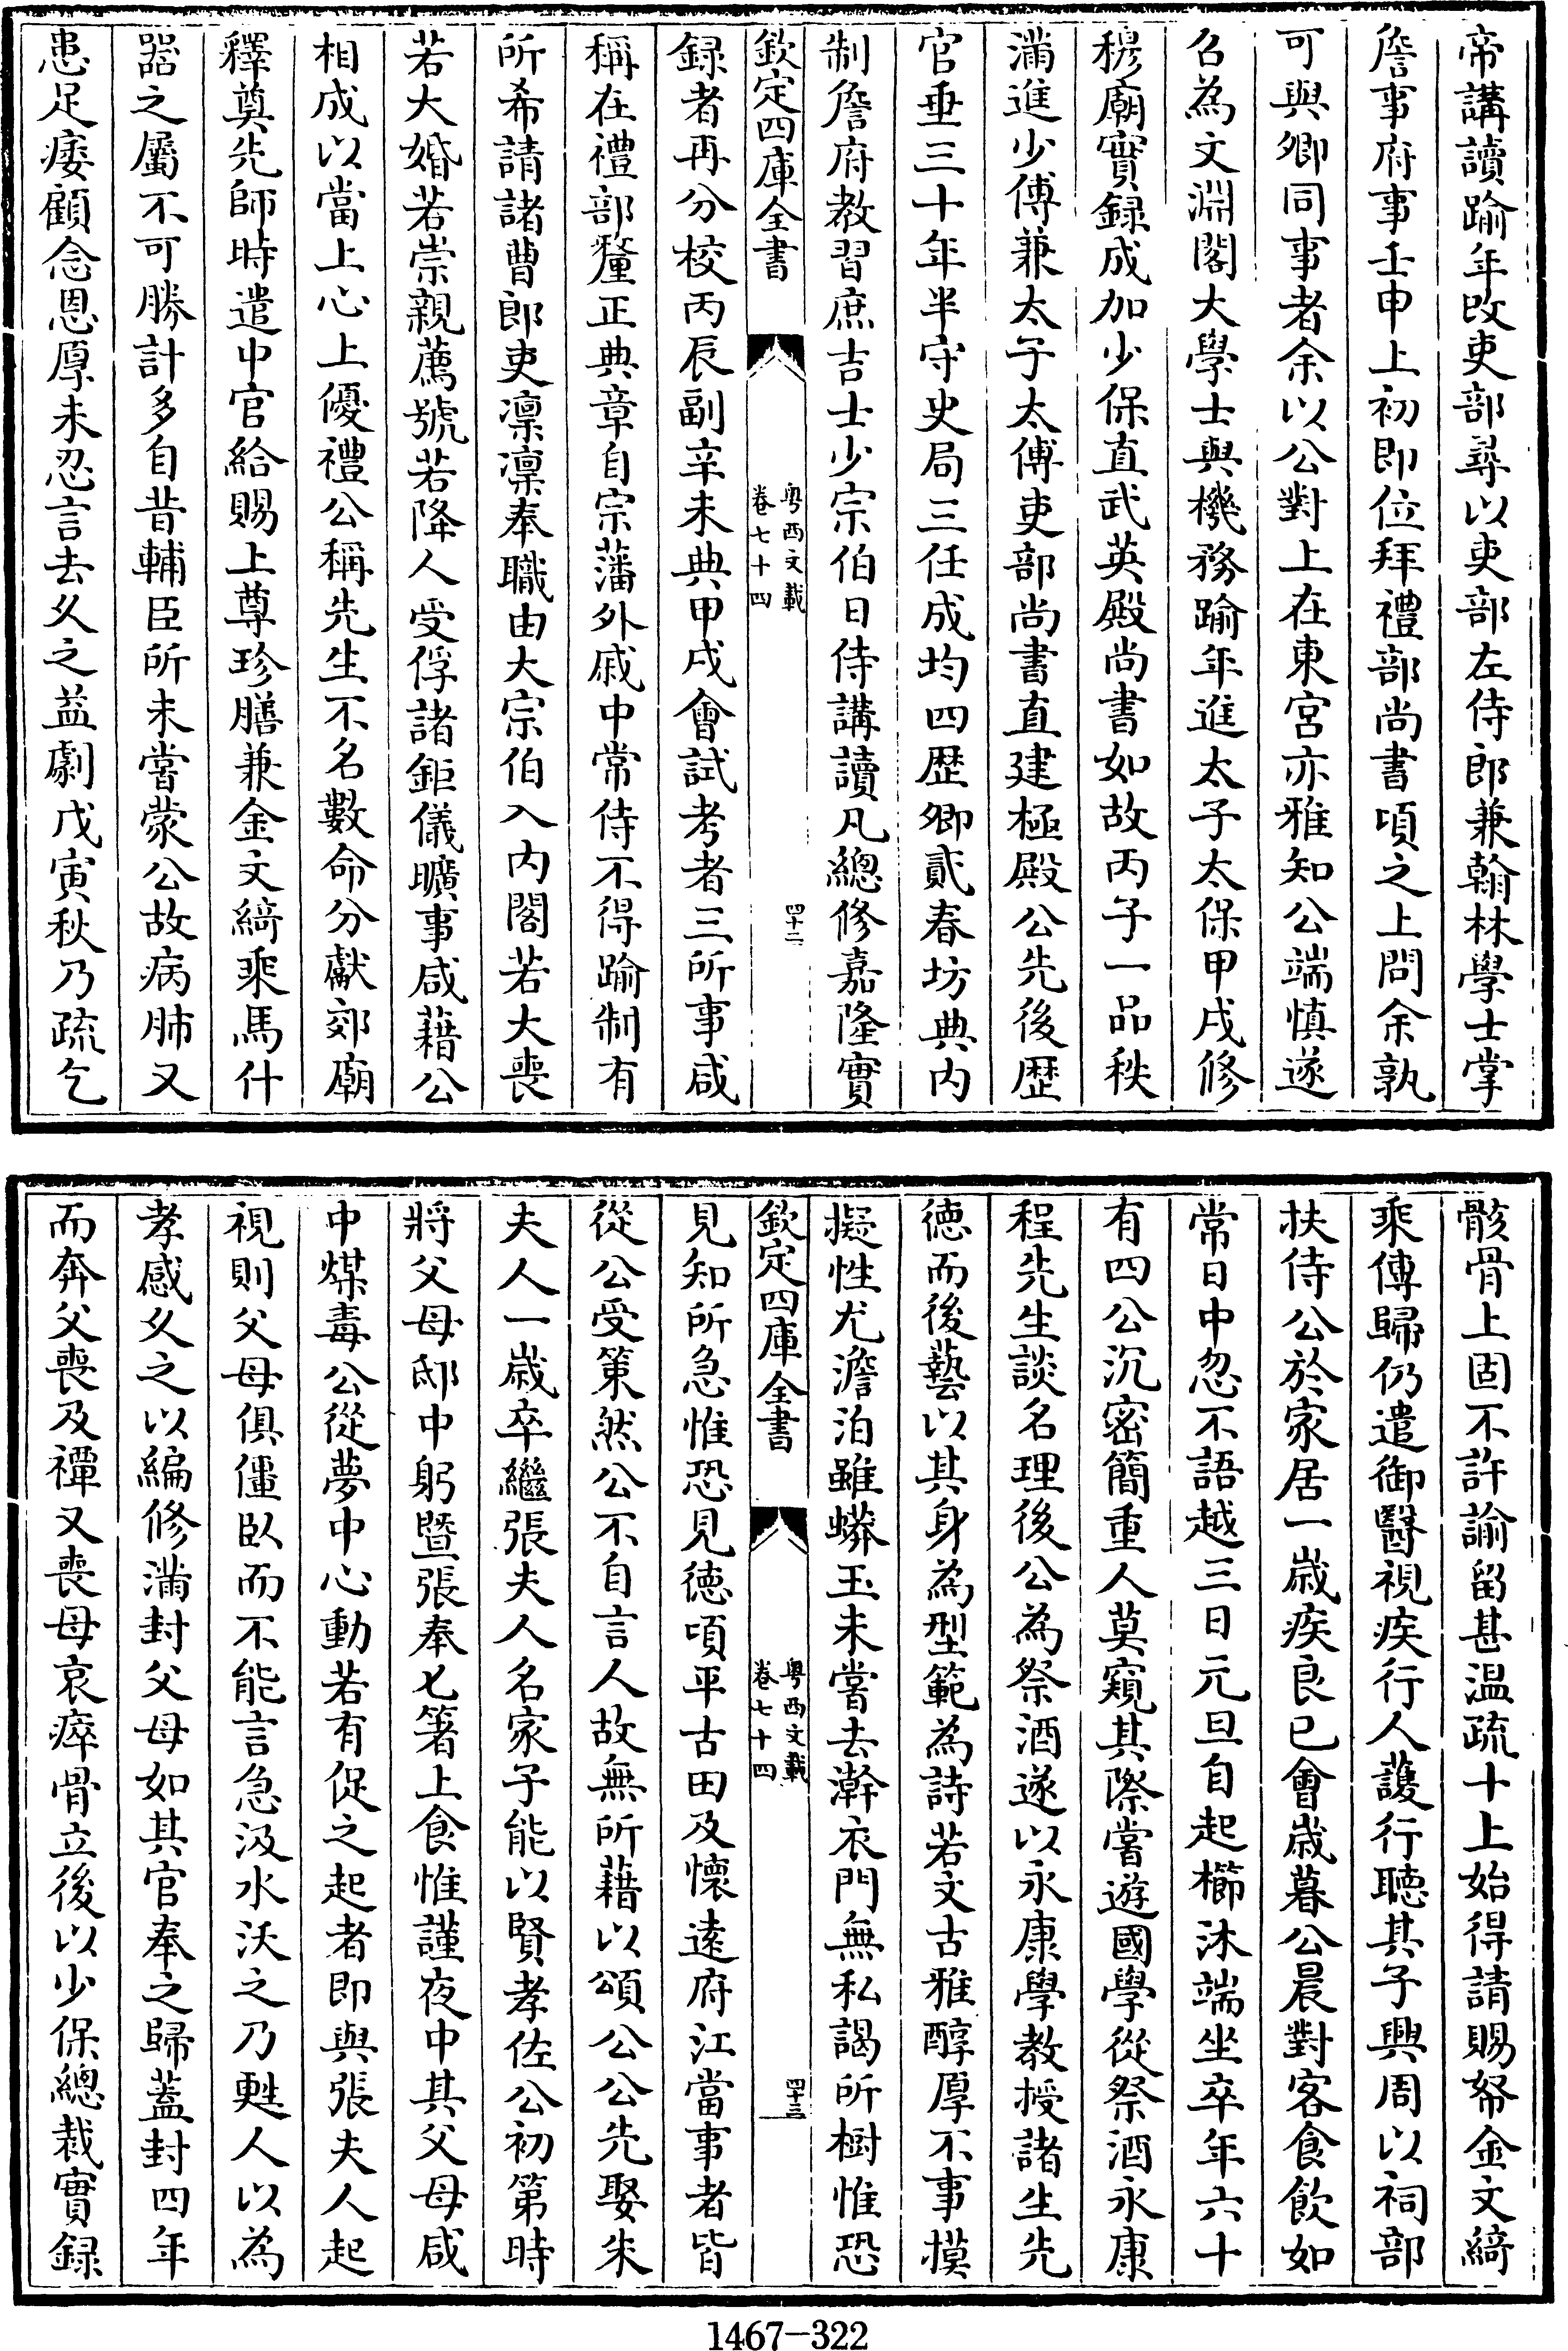 帝講讀踰年改吏部尋以吏部左侍郎兼翰林學士掌
詹事府事壬申上初即位拜禮部尚書頃之上問余孰
可與卿同事者余以公對上在東宮亦雅知公端慎遂
召為文淵閣大學士與機務踰年進太子太保甲戌修
穆廟實録成加少保直武英殿尚書如故丙子一品秩
滿進少傅兼太子太傅吏部尚書直建極殿公先後歴
官垂三十年半守史局三任成均四歴卿貳春坊典内
制詹府教習庶吉士少宗伯日侍講讀凡總修嘉隆實
欽定四庫全書
粤西文載
卷七十四
四十二
録者再分校丙辰副辛未典甲戌會試考者三所事咸
稱在禮部釐正典章自宗藩外戚中常侍不得踰制有
所希請諸曹郎吏凛凛奉職由大宗伯入内閣若大喪
若大婚若崇親薦號若降人受俘諸鉅儀曠事咸藉公
相成以當上心上優禮公稱先生不名數命分獻郊廟
釋奠先師時遣中官給賜上尊珍膳兼金文綺乘馬什
器之屬不可勝計多自昔輔臣所未嘗蒙公故病肺又
患足痿顧念恩厚未忍言去乆之益劇戊寅秋乃疏乞
骸骨上固不許諭留甚温疏十上始得請賜帑金文綺
乘傳歸仍遣御醫視疾行人護行聽其子興周以祠部
扶侍公於家居一嵗疾良已會嵗暮公晨對客食飲如
常日中忽不語越三日元旦自起櫛沐端坐卒年六十
有四公沉密簡重人莫窺其際嘗遊國學從祭酒永康
程先生談名理後公為祭酒遂以永康學教授諸生先
徳而後藝以其身為型範為詩若文古雅醇厚不事摸
擬性尤澹泊雖蟒玉未嘗去澣衣門無私謁所樹惟恐
欽定四庫全書
粤西文載
卷七十四
四十三
見知所急惟恐見徳頃平古田及懷逺府江當事者皆
從公受策然公不自言人故無所藉以頌公公先娶朱
夫人一嵗卒繼張夫人名家子能以賢孝佐公初第時
將父母邸中躬暨張奉匕箸上食惟謹夜中其父母咸
中煤毒公從夢中心動若有促之起者即與張夫人起
視則父母俱僵臥而不能言急汲水沃之乃甦人以為
孝感乆之以編修滿封父母如其官奉之歸蓋封四年
而奔父喪及禫又喪母哀瘁骨立後以少保總裁實録
1467-322